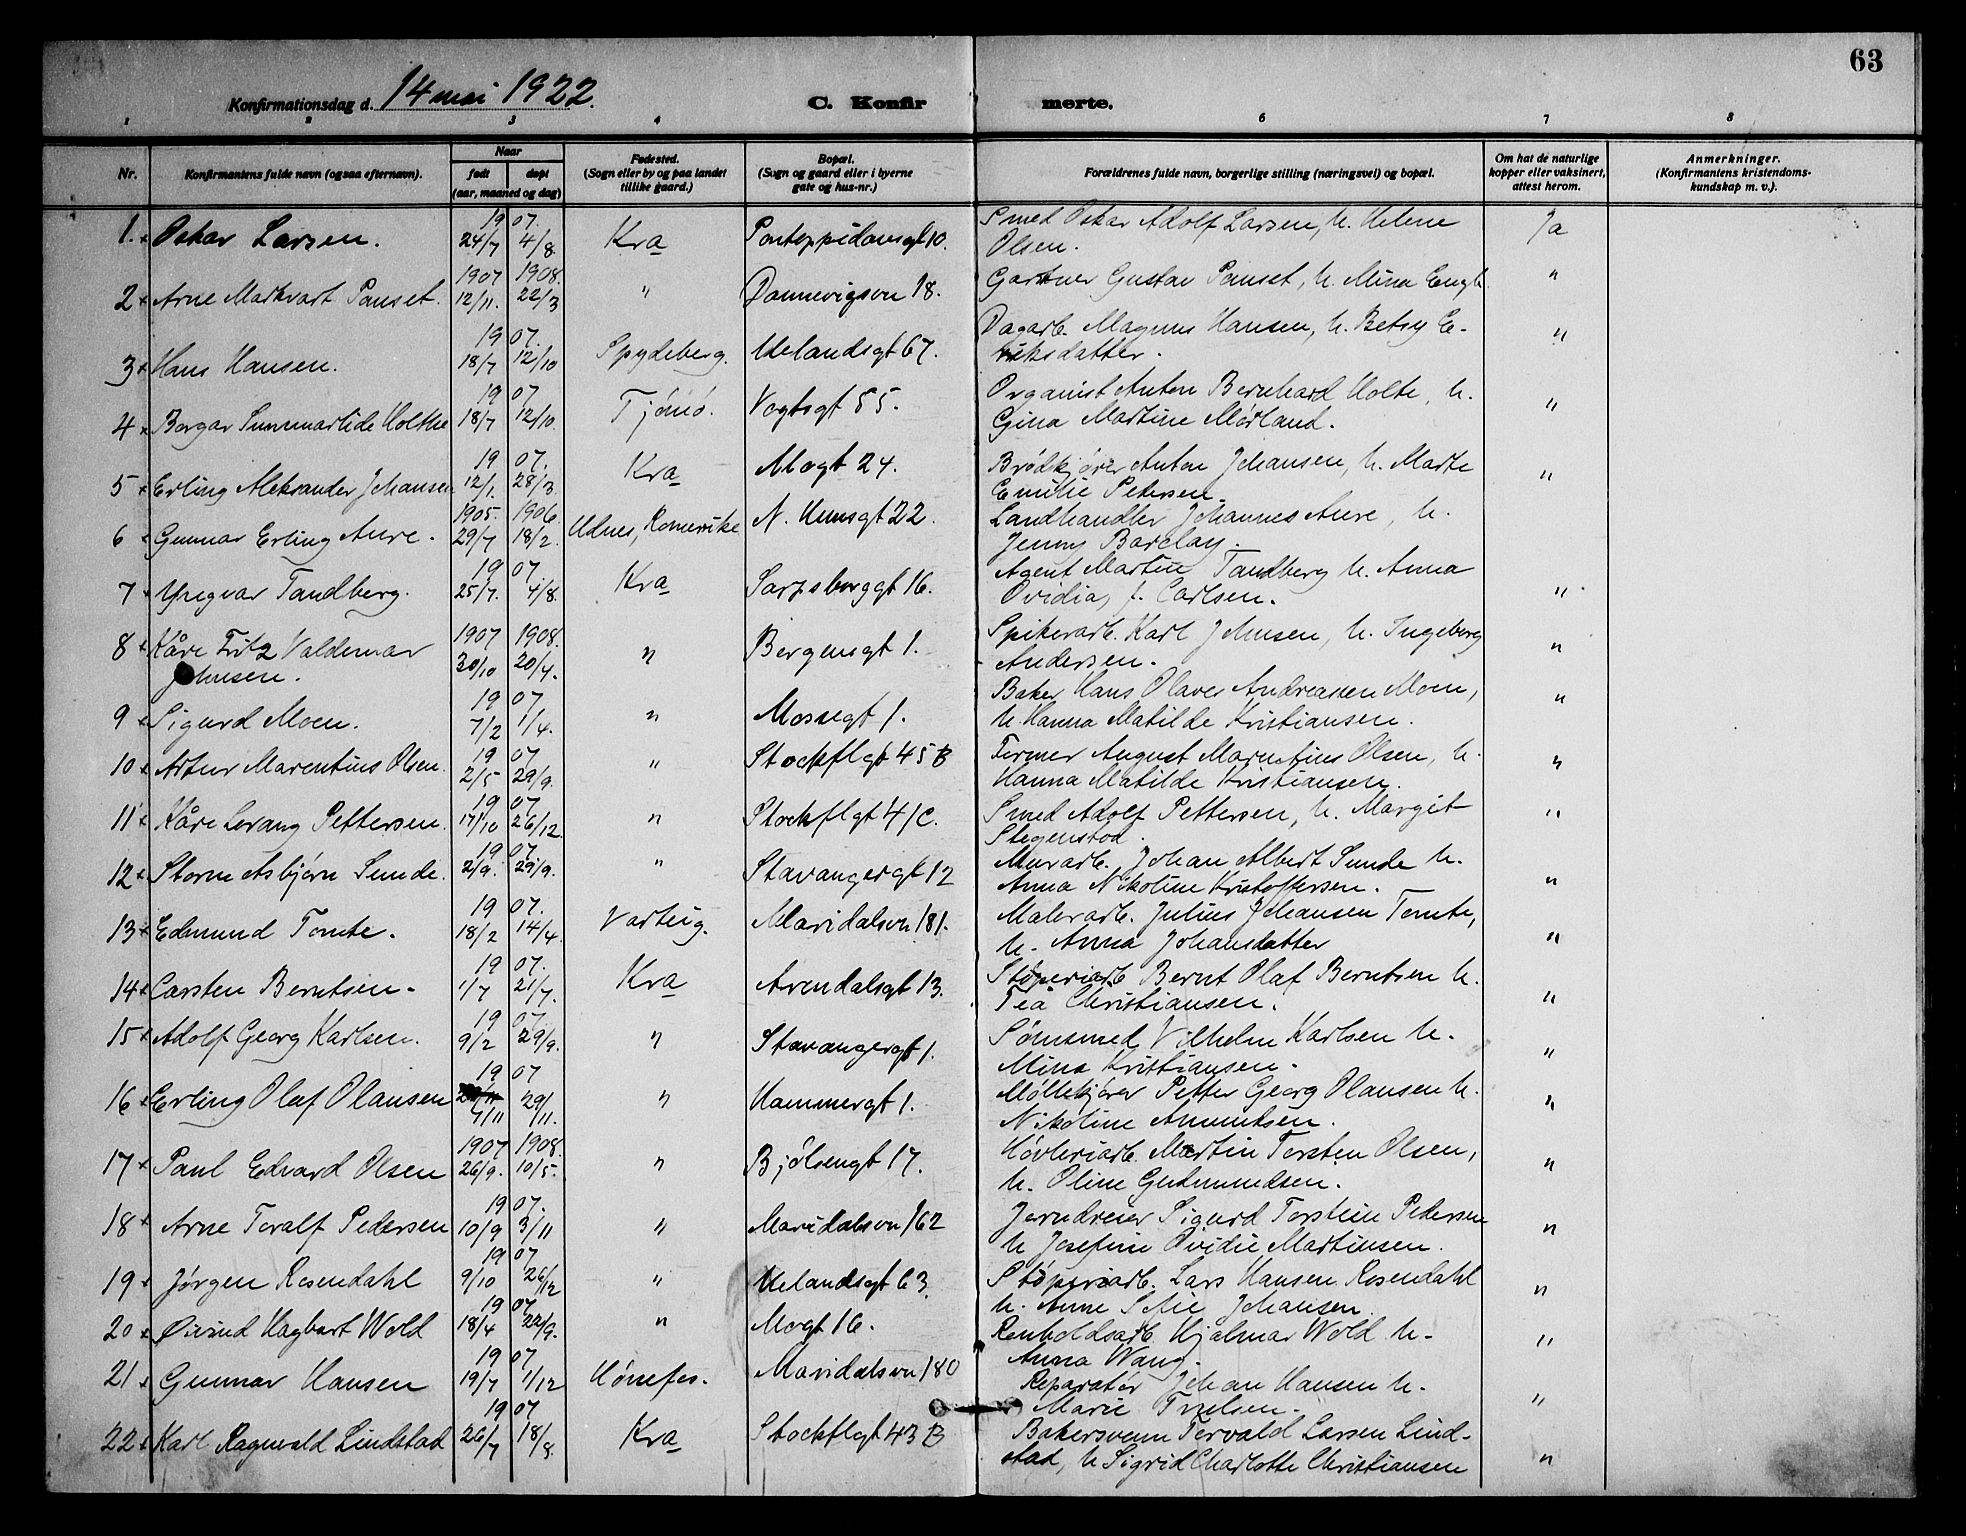 63
Konfirmationsdag d. 14 mai 1922.
C. Konfirmerte.
1 2 3 4 6 7 8
Nr. Konfirmantens fulde navn (ogsaa efternavn). Naar født døpt (aar, maaned og dag) Fødested. (Sogn eller by og paa landet tillike gaard.) Bopæl. (Sogn og gaard eller i byerne gate og hus-nr.) Forældrenes fulde navn, borgerlige stilling (næringsvei) og bopæl. Om hat de naturlige kopper eller vaksinert, attest herom. Anmerkninger. (Konfirmantens kristendomskundskap m. v.).
1. Oskar Larsen. 1907. 24/7 4/8 Kra Pontoppidansgt 10. Smed Oskar Adolf Larsen, u. Helene Olsen. Ja
2 Arne Markvart Panset. 1907 12/11. 1908. 22/3 " Dannevigsvn 18. Gartner Gustav Panset, u. Mina Engh "
3 Hans Hansen. 1907. 18/7 12/10 Spydeberg. Uelandsgt 67. Dagarb. Magnus Hansen, u. Betsy Eriksdatter. "
4 Borgar Holthe 1907 18/7 12/10 Tjömö. Vogtsgt 55. Organist Anton Bernhard Holte, u. Gina Martine Mørland. "
5 Erling Aleksander Johansen 1907. 12/1. 28/3. Kra Mogt 24. Brödkjører Anton Johansen, u. Marte Emilie Petersen. "
6 Gunnar Erling Aure. 1905. 29/7 1906. 18/2. Udnes, Romerike N. Hunsgt 22. Landhandler Johannes Aure, u. Jenny Barclay.
7 Yngvar Tandberg. 1907 25/7. 4/8. Kra Sarpsborggt 16. Agent Martin Tandberg u. Anna Ovidia, f. Carlsen. "
8 Kåre Fritz Valdemar Johnsen. 1907 30/10 1908. 20/4. " Bergensgt 1. Spikerarb. Karl Johnsen, u. Ingeborg Andersen. "
9 Sigurd Moen. 1907 7/2 1/4. " Mossegt 1. Baker Hans Olaves Andreassen Moen, u. Hanna Matilde Kristiansen. "
10 Artur Marentius Olsen. 1907 2/5 29/9. " Stockflgt 45 B Former August Marentius Olsen, u. Hanna Matilde Kristiansen. "
11 Kåre Lorang Pettersen. 1907 17/10 26/12. " Stockflgt 41C. Smed Adolf Pettersen, u. Margit Stegenstod. "
12 Storm Asbjørn Sunde. 1907 2/9. 29/9. " Stavangergt 12 Murarb. Johan Albert Sunde u. Anna Nikoline Kristoffersen. "
13 Edmund Tomte. 1907. 18/2 14/4. Varteig. Maridalsvn 181. Malerarb. Julius Johansen Tomte, u. Anna Johansdatter "
14 Carsten Berntsen. 1907. 1/7 21/7. Kra Arendalsgt 13. Støperiarb. Bernt Olaf Berntsen u. Tea Christiansen. "
15 Adolf Georg Karlsen. 1907. 9/2 29/9. " Stavangergt 1. Sømsmed Vilhelm Karlsen u. Mina Kristiansen. "
16 Erling Olaf Olausen 1907 4/11 29/11. " Hammergt 1. Møllekjører Petter Georg Olausen u. Nikoline Amundsen. "
17 Paul Edvard Olsen 1907 26/9. 1908. 10/5. " Bjølsengt 17. Høvleriarb. Martin Torsten Olsen, u. Oline Gudmundsen. "
18 Arne Toralf Pedersen 1907. 10/9 3/11 " Maridalsvn 162 Jerndreier Sigurd Torstein Pedersen u Josefine Ovidie Martinsen. "
19 Jørgen Rosendahl 1907 9/10 26/12 " Uelandsgt 63. Støperiarb. Lars Hansen Rosendahl u. Anne Sofie Johansen. "
20 Øivind Hagbart Wold 1907 18/4 22/9. " Mogt 16. Renholdsarb. Hjalmar Wold u. Anna Wang. "
21 Gunnar Hansen 1907 19/7 1/12 Hønefos. Maridalsvn 180 Reparatör Johan Hansen u. Marie Truelsen. "
22 Karl Ragnvald Lindstad 1907 26/7 18/8. Kra Stockflgt 43 B Bakersvenn Torvald Larsen Lindstad, u Sigrid Charlotte Christiansen "